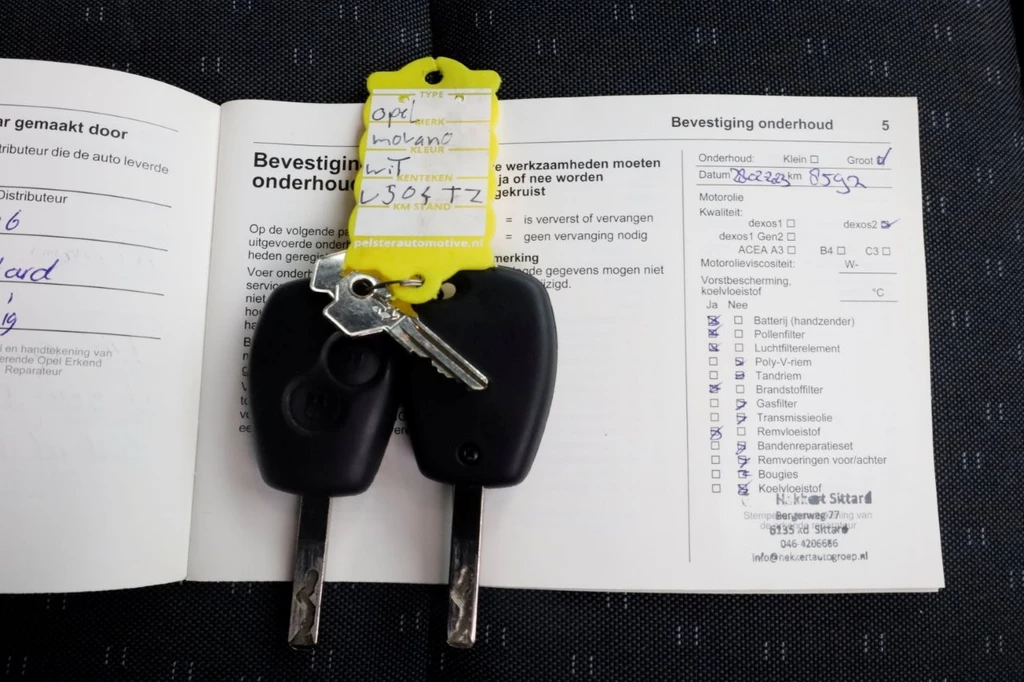 ar gemaakt door
tributeur die de auto leverde
Distributeur
6
ard
ig
i en handtekening van
erende Opel Erkend
Reparateur
TYPE
Opel
MERK
movano
KLEUR
wiT
KENTEKEN
V504TZ
KM STAND
pelsterautomotive.nl
Bevestigin
onderhou
Op de volgende pa
uitgevoerde onderh
heden geregis
Voer ondert
servic
niet
hou
e werkzaamheden moeten
ja of nee worden
gekruist
= is ververst of vervangen
= geen vervanging nodig
merking
gde gegevens mogen niet
izigd.
Bevestiging onderhoud 5
Onderhoud: Klein Groot
Datum km 8592
Motorolie
Kwaliteit:
dexos1 dexos2
dexos1 Gen2
ACEA A3 B4 C3
Motorolieviscositeit: W-
Vorstbescherming,
koelvloeistof °C
Ja Nee
Batterij (handzender)
Pollenfilter
Luchtfilterelement
Poly-V-riem
Tandriem
Brandstoffilter
Gasfilter
Transmissieolie
Remvloeistof
Bandenreparatieset
Remvoeringen voor/achter
Bougies
Koelvloeistof
Sittard
Bergerweg 77
6135 Kd Sittard
046-4206666
info@hekkertautogroep.nl